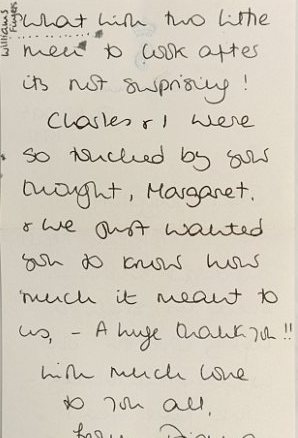 williams
fingers
what with two little
men to look after
its not surprising!
Charles & I were
so touched by your
thought, Margaret,
& we just wanted
you to know how
much it meant to
us, – A huge thank you!!
with much love
to you all,
from Diana